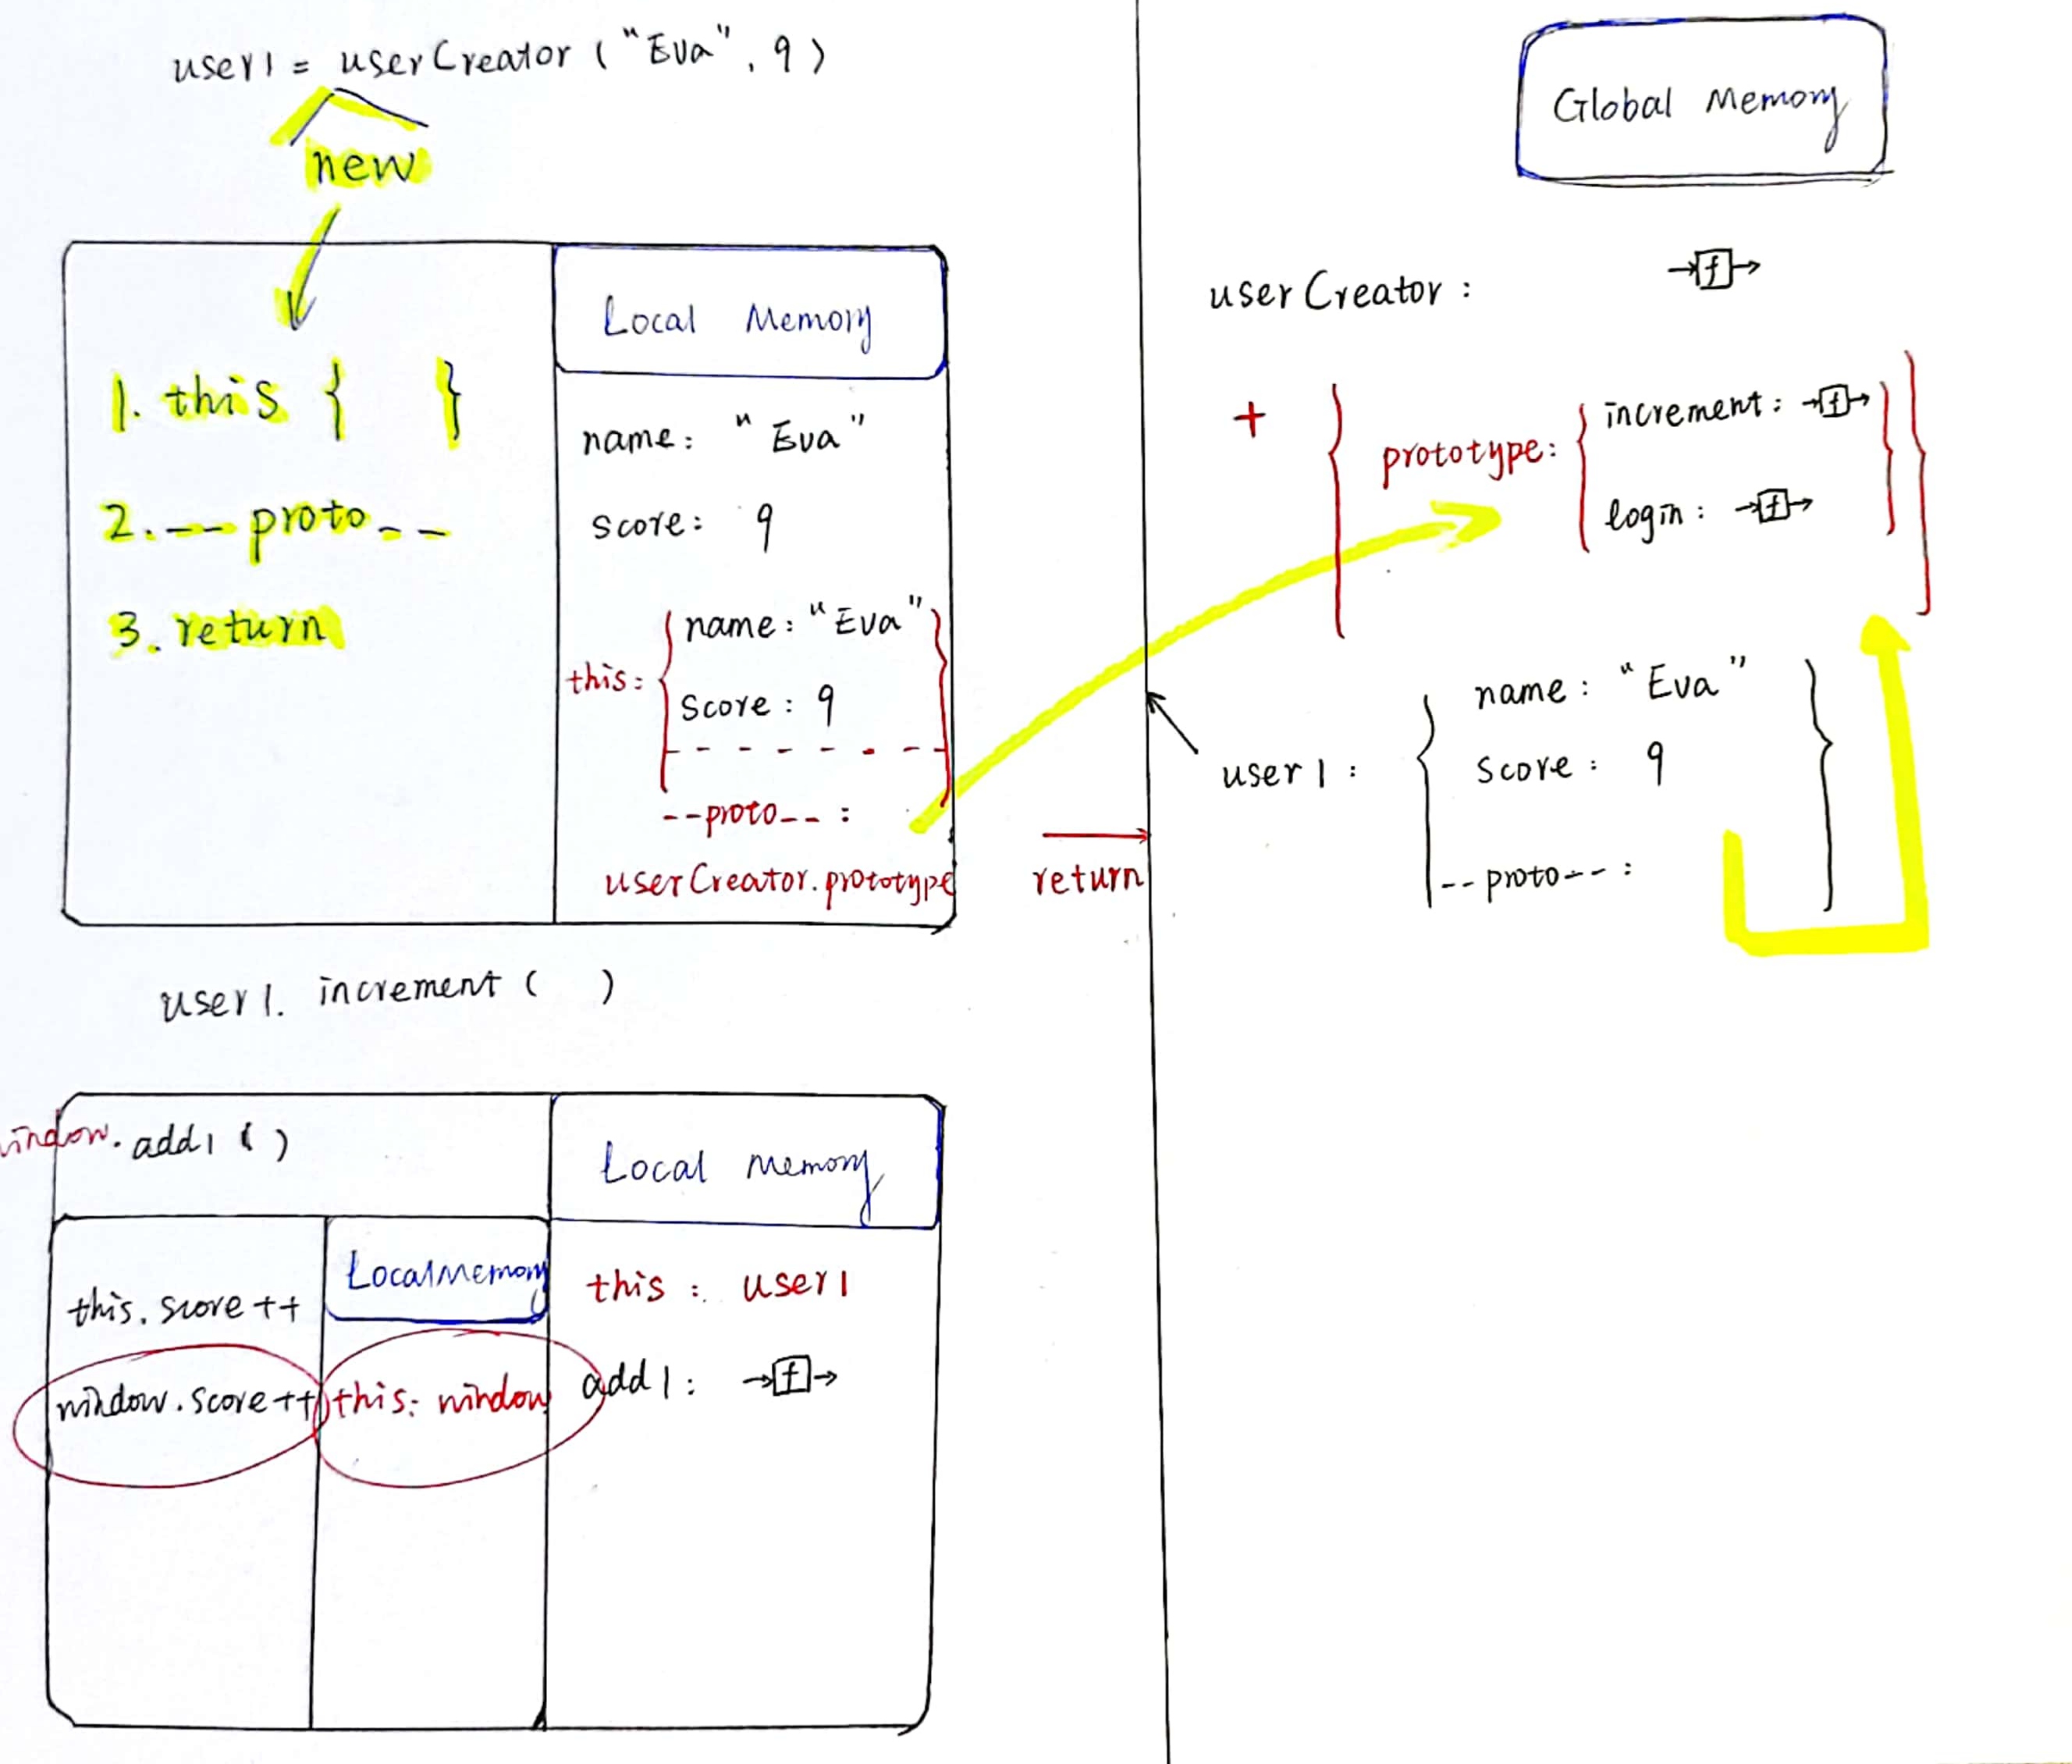 user1 = userCreator ( "Eva", 9 )
new
1. this { }
2. __ proto _ _
3. return
Local Memory
name: "Eva"
score: 9
this: { name: "Eva"
score: 9
--proto-- :
userCreator.prototype
return
user1. increment ( )
window. add1 ( )
Local Memory
this. score ++
Local Memory
this : user1
window. score ++
this: window
add1 : f
Global Memory
userCreator : f
+ { prototype: { increment: f } }
login : f
user1 : { name : "Eva" }
score : 9
--proto-- :